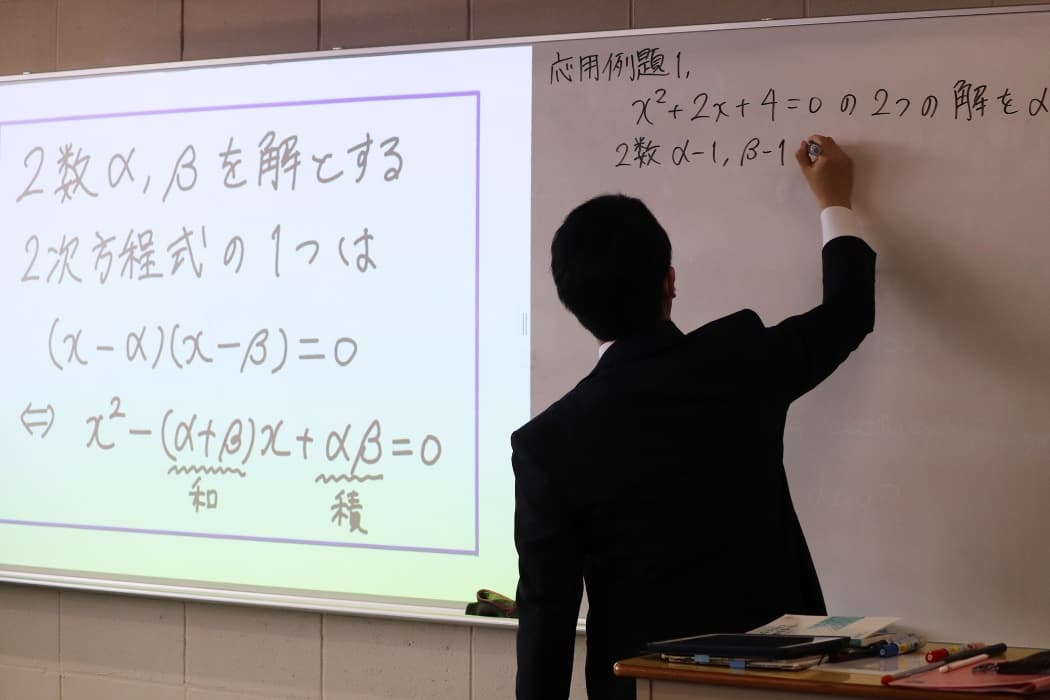 2数α, βを解とする
2次方程式の1つは
(x-α)(x-β)=0
⇔ x²-(α+β)x+αβ=0
和 積
応用例題1,
x²+2x+4=0の2つの解をα
2数 α-1, β-1